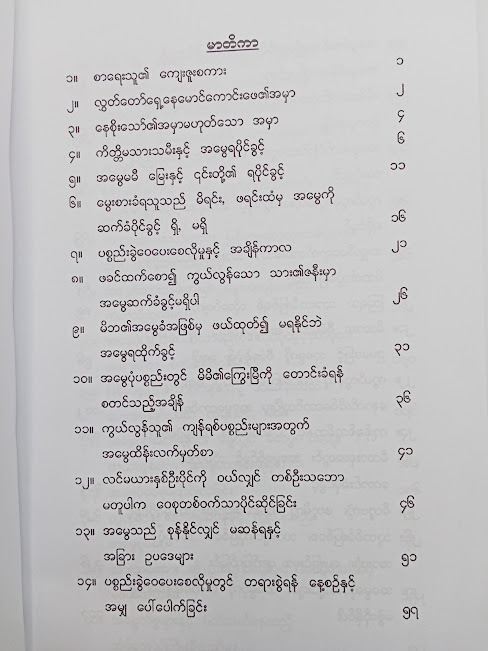 မာတိကာ
၁။ စာရေးသူ၏ ကျေးဇူးစကား ၁
၂။ လွှတ်တော်ရှေ့နေမောင်ကောင်းဖေ၏အမှာ ၂
၃။ နေစိုးသော်၏အမှာမဟုတ်သော အမှာ ၄
၄။ ကိတ္တိမသားသမီးနှင့် အမွေရပိုင်ခွင့် ၆
၅။ အမွေမမီ မြေးနှင့် ၎င်းတို့၏ ရပိုင်ခွင့် ၁၁
၆။ မွေးစားခံရသူသည် မိရင်း, ဖရင်းထံမှ အမွေကို
ဆက်ခံပိုင်ခွင့် ရှိ, မရှိ ၁၆
၇။ ပစ္စည်းခွဲဝေပေးစေလိုမှုနှင့် အချိန်ကာလ ၂၁
၈။ ဖခင်ထက်စော၍ ကွယ်လွန်သော သား၏ဇနီးမှာ
အမွေဆက်ခံခွင့်မရှိပါ ၂၆
၉။ မိဘ၏အမွေခံအဖြစ်မှ ဖယ်ထုတ်၍ မရနိုင်ဘဲ
အမွေရထိုက်ခွင့် ၃၁
၁၀။ အမွေပုံပစ္စည်းတွင် မိမိ၏ကြွေးမြီကို တောင်းခံရန်
စတင်သည့်အချိန် ၃၆
၁၁။ ကွယ်လွန်သူ၏ ကျန်ရစ်ပစ္စည်းများအတွက်
အမွေထိန်းလက်မှတ်စာ ၄၁
၁၂။ လင်မယားနှစ်ဦးပိုင်ကို ဝယ်လျှင် တစ်ဦးသဘော
မတူပါက ဝေစုတစ်ဝက်သာပိုင်ဆိုင်ခြင်း ၄၆
၁၃။ အမွေသည် စုန်နိုင်လျှင် မဆန်ရနှင့်
အခြား ဥပဒေများ ၅၁
၁၄။ ပစ္စည်းခွဲဝေပေးစေလိုမှုတွင် တရားစွဲရန် နေ့စဉ်နှင့်
အမျှ ပေါ်ပေါက်ခြင်း ၅၇